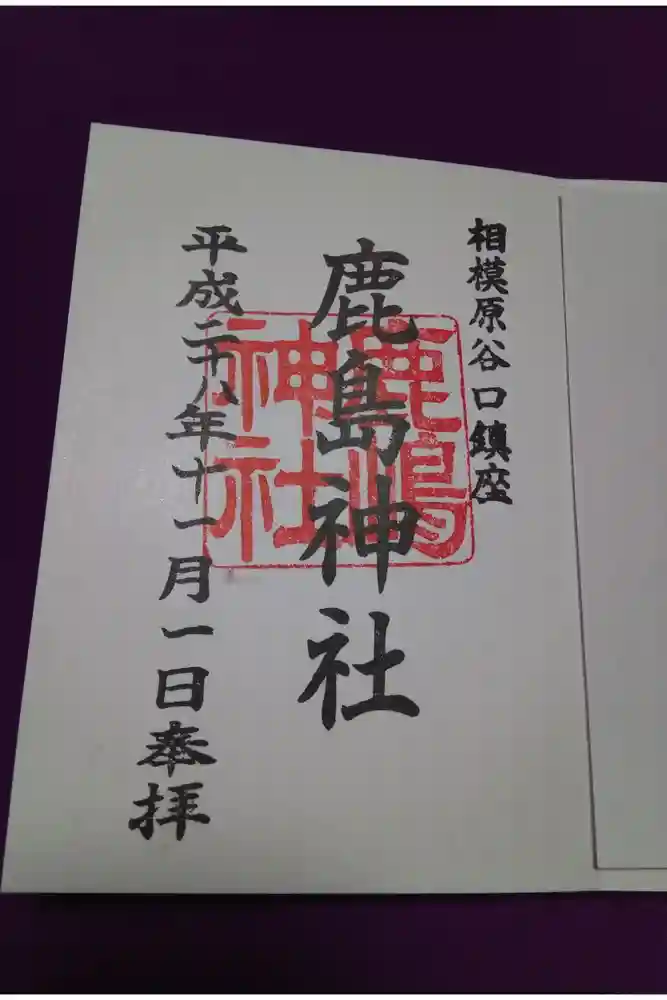 相模原谷口鎮座
鹿島神社
鹿嶋
神社
平成二十八年十一月一日奉拝